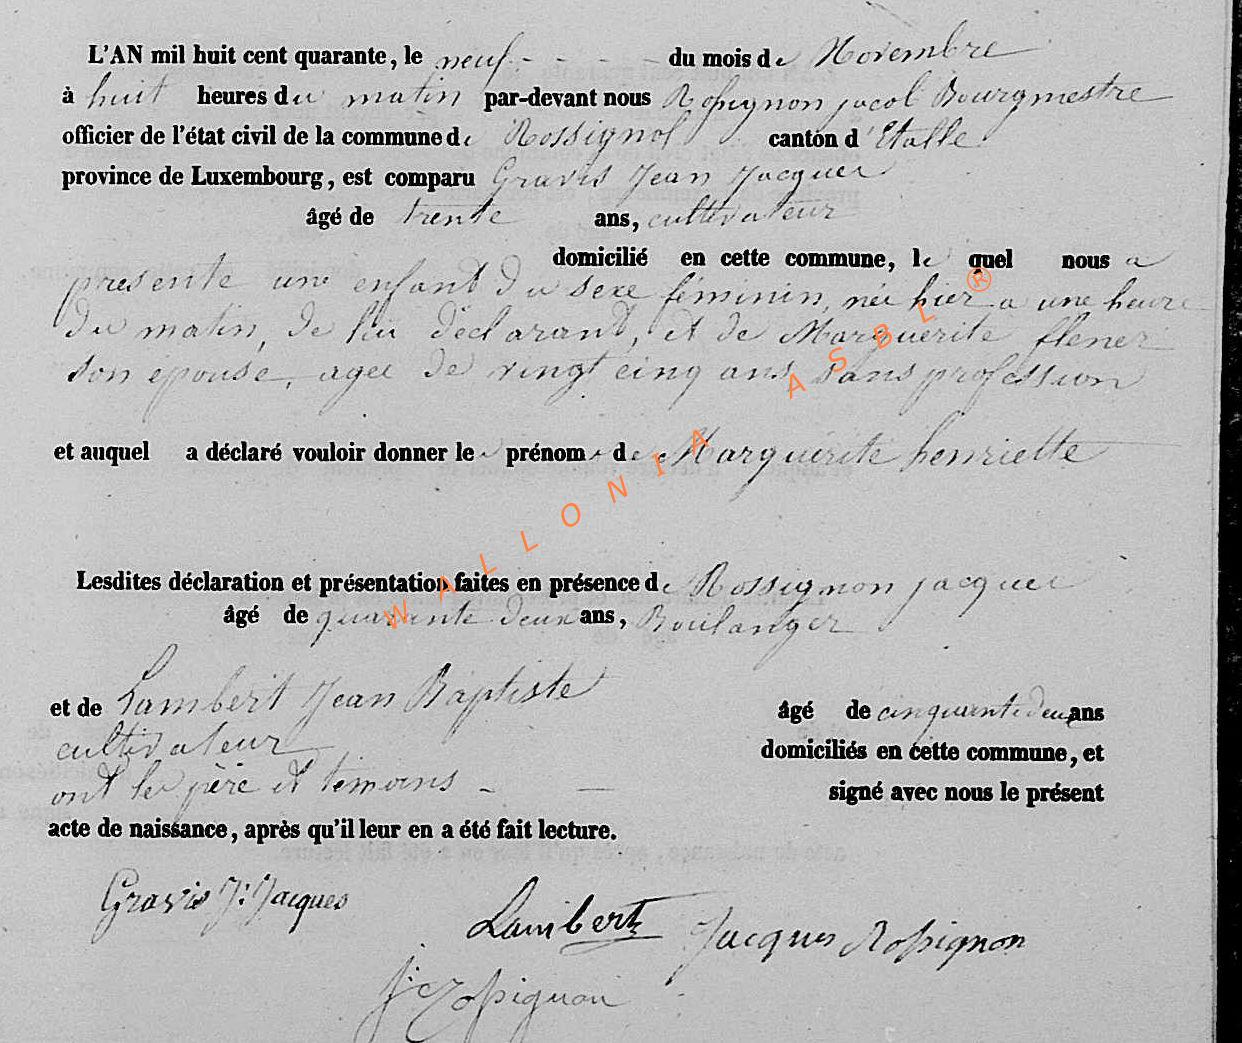 L'AN mil huit cent quarante, le neuf - - - - du mois de Novembre
à huit heures du matin par-devant nous Rossignon jacob Bourgmestre
officier de l'état civil de la commune de Rossignol canton d'Etalle
province de Luxembourg, est comparu Gravis Jean Jacques
âgé de trente ans, cultivateur
domicilié en cette commune, le quel nous a
présenté une enfant du sexe féminin, née hier a une heure
du matin, de lui déclarant, et de Marguerite flener
son epouse, agee de vingt cinq ans sans profession
et auquel a déclaré vouloir donner le prénom de Marguerite henriette
Lesdites déclaration et présentation faites en présence de Rossignon jacques
âgé de quarante deux ans, Boulanger
et de Lambert Jean Baptiste âgé de cinquante deux ans
cultivateur domiciliés en cette commune, et
ont le père et témoins - — signé avec nous le présent
acte de naissance, après qu'il leur en a été fait lecture.
Gravis J: Jacques
Lambert Jacques Rossignon
J: Rossignon
WALLONIA ASBL ®